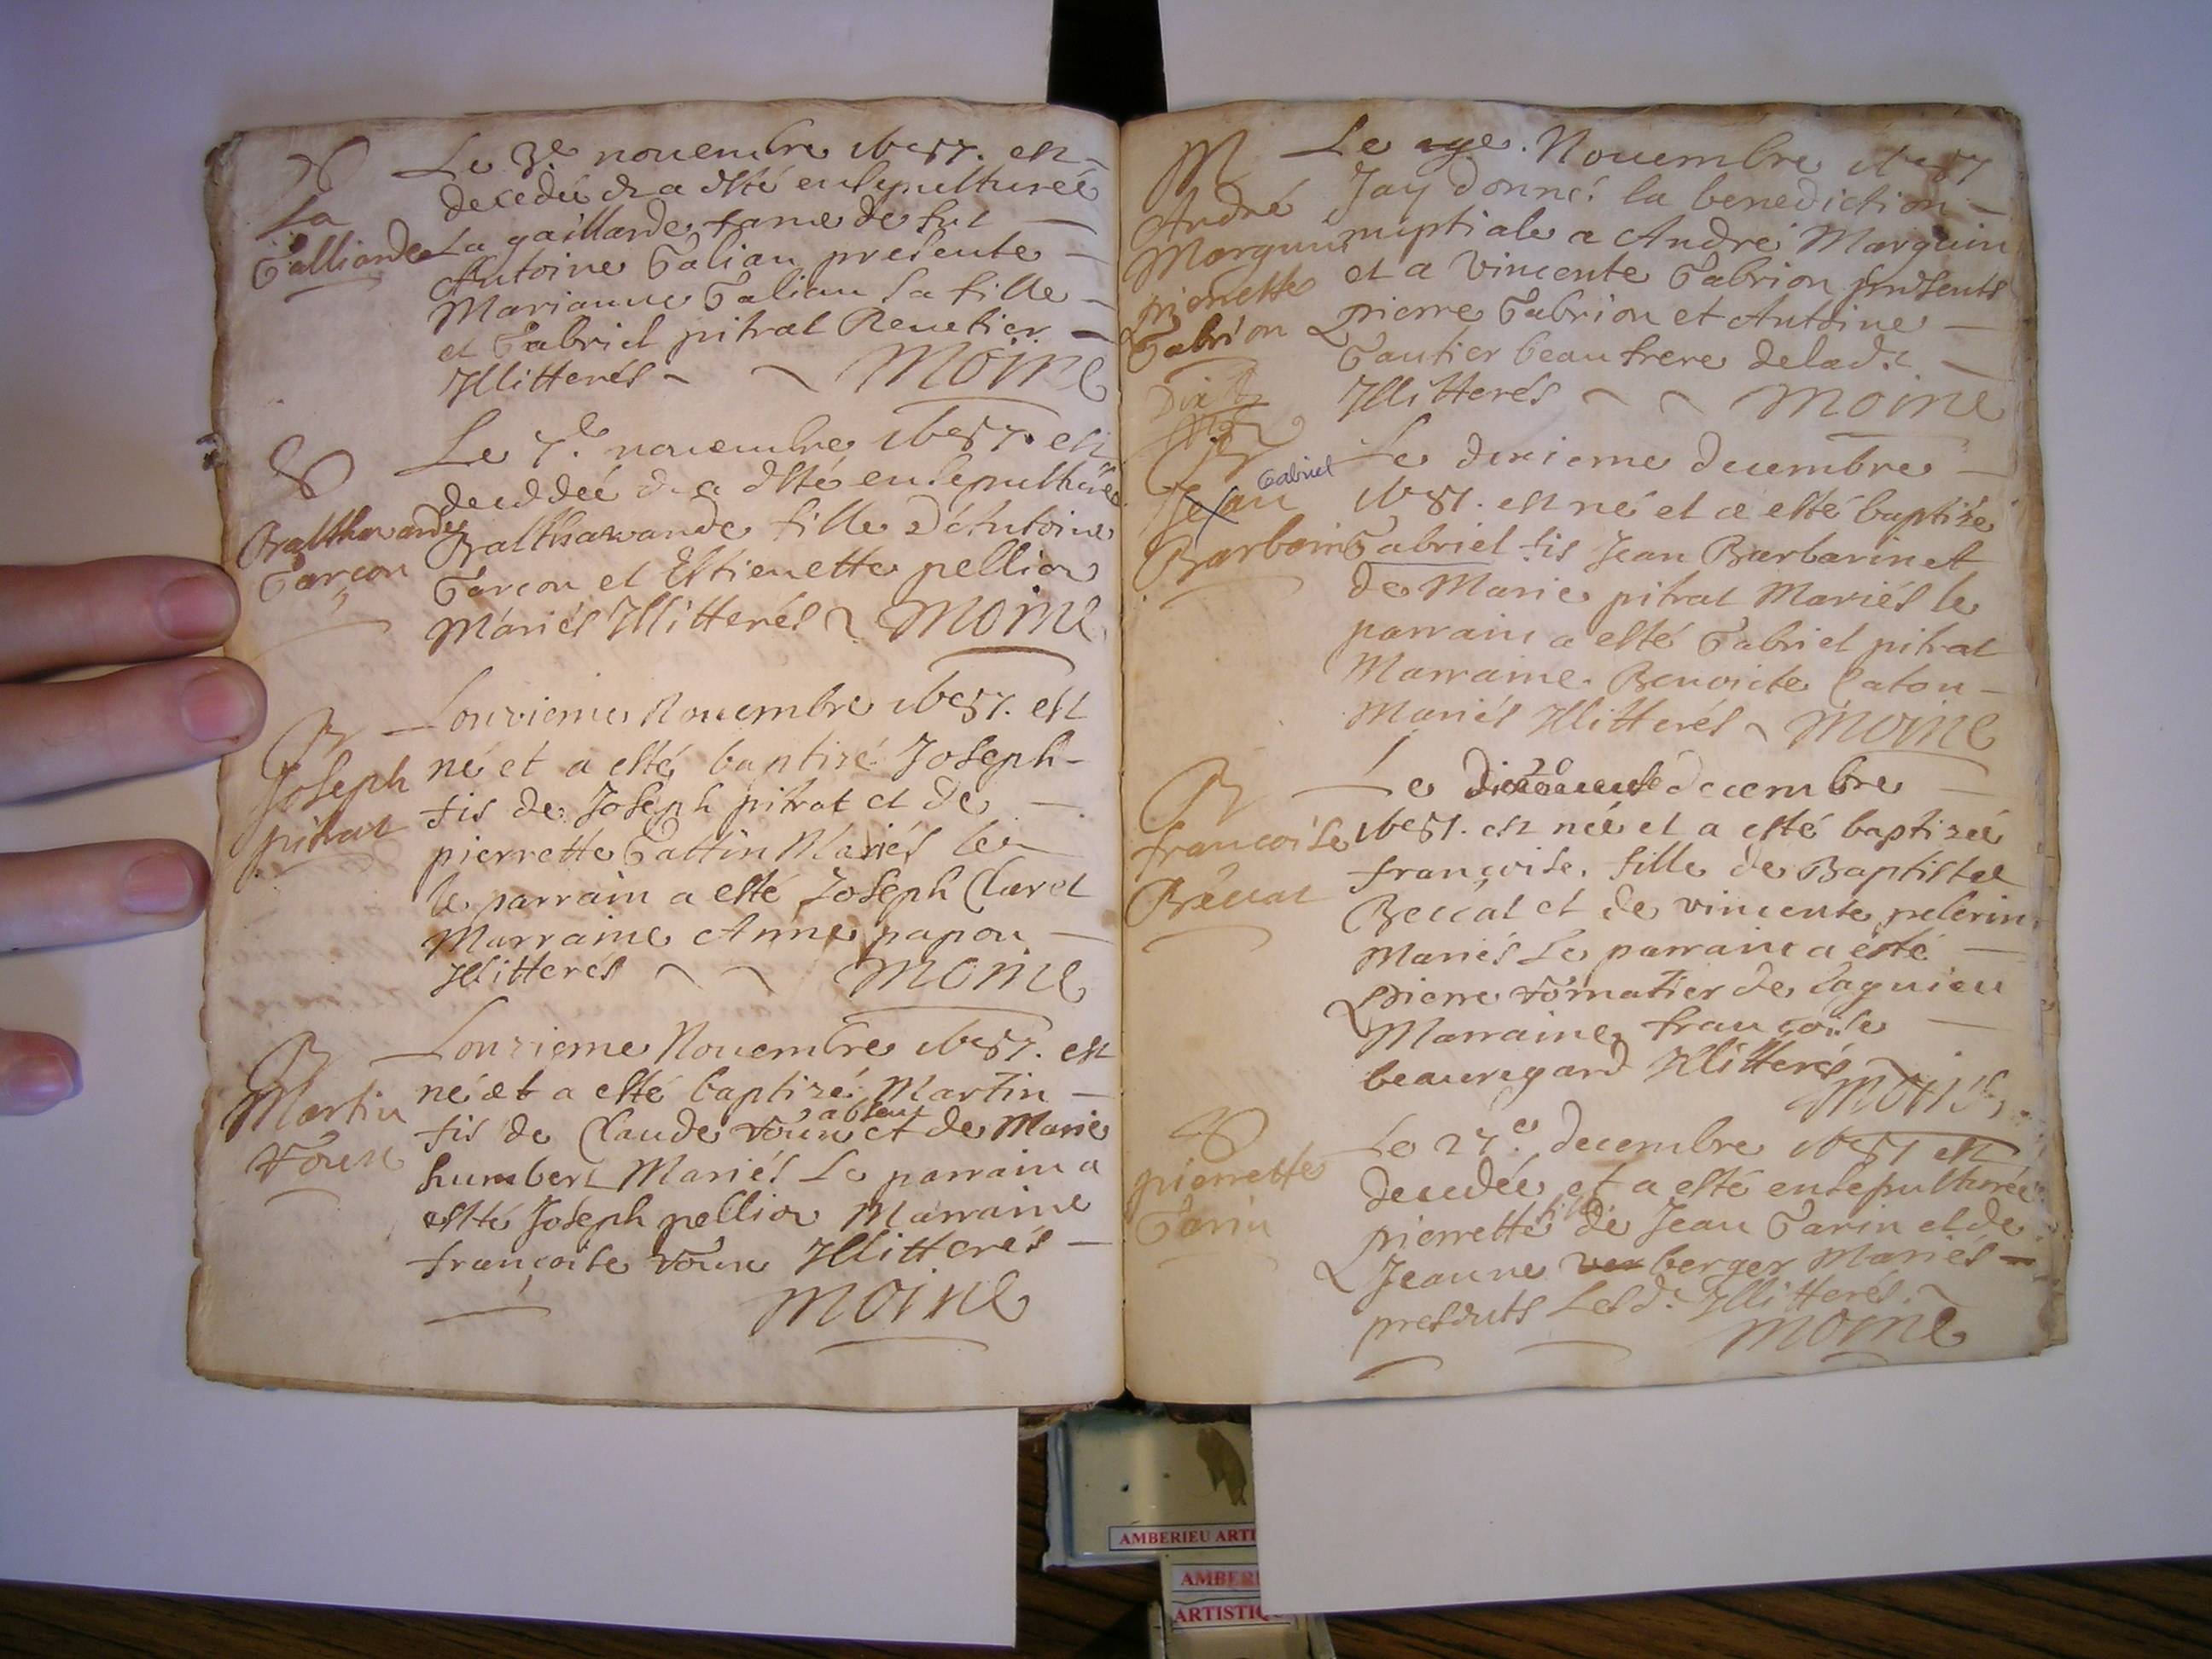 La
Galliarde
Le 3e nouembre
decedée & a esté ensepulturée
La gaillarde fame de fut
Antoine Galian presente
Marianne Galian sa fille
et Gabriel pitrat
Illitterés Moine
Balthazarde
Garcon
Le 7e nouembre est
decedée & a esté ensepulturée
Balthazarde fille d'Antoine
Garcon et Estienette pellion
Mariés Illitterés Moine
Joseph
pitrat
Lonzieme Nouembre est
né et a esté baptizé Joseph
fis de Joseph pitrat et de
pierrette Gattin Mariés le
le parrain a esté Joseph Claret
Marraine Anne papon
Illitterés Moine
Martin
Lonzieme Nouembre est
né et a esté baptizé Martin
fis de Claude absent et de Marie
humbert Mariés Le parrain a
esté Joseph pellion Marraine
françoise Illitterés
Moine
M
André
Marguin
pierrette
Gabrion
Le Nouembre
Jay donné la benediction
nuptiale a André Marguin
et a Vincente Gabrion presents
pierre Gabrion et Antoine
Gautier beau frere de lad.t
Illitterés Moine
Jean Gabriel
Barbarin
Le decembre
est né et a esté baptizé
Gabriel fis Jean Barbarin et
de Marie pitrat Mariés le
parrain a esté Gabriel pitrat
Marraine Benoicte Caton
Mariés Illitterés Moine
françoise
Beccat
Le 20 decembre
est née et a esté baptizée
françoise fille de Baptiste
Beccat et de vincente pelerin
Mariés Le parrain a esté
pierre de Lagnieu
Marraine françoise
beauregard Illitterés
Moine
pierrette
Garin
Le 27e decembre est
decedée et a esté ensepulturée
pierrette fille de Jean Garin et de
Jeanne berger Mariés
presents Lesd. Illitterés
Moine
AMBERIEU ARTI
AMBER
ARTISTIQ